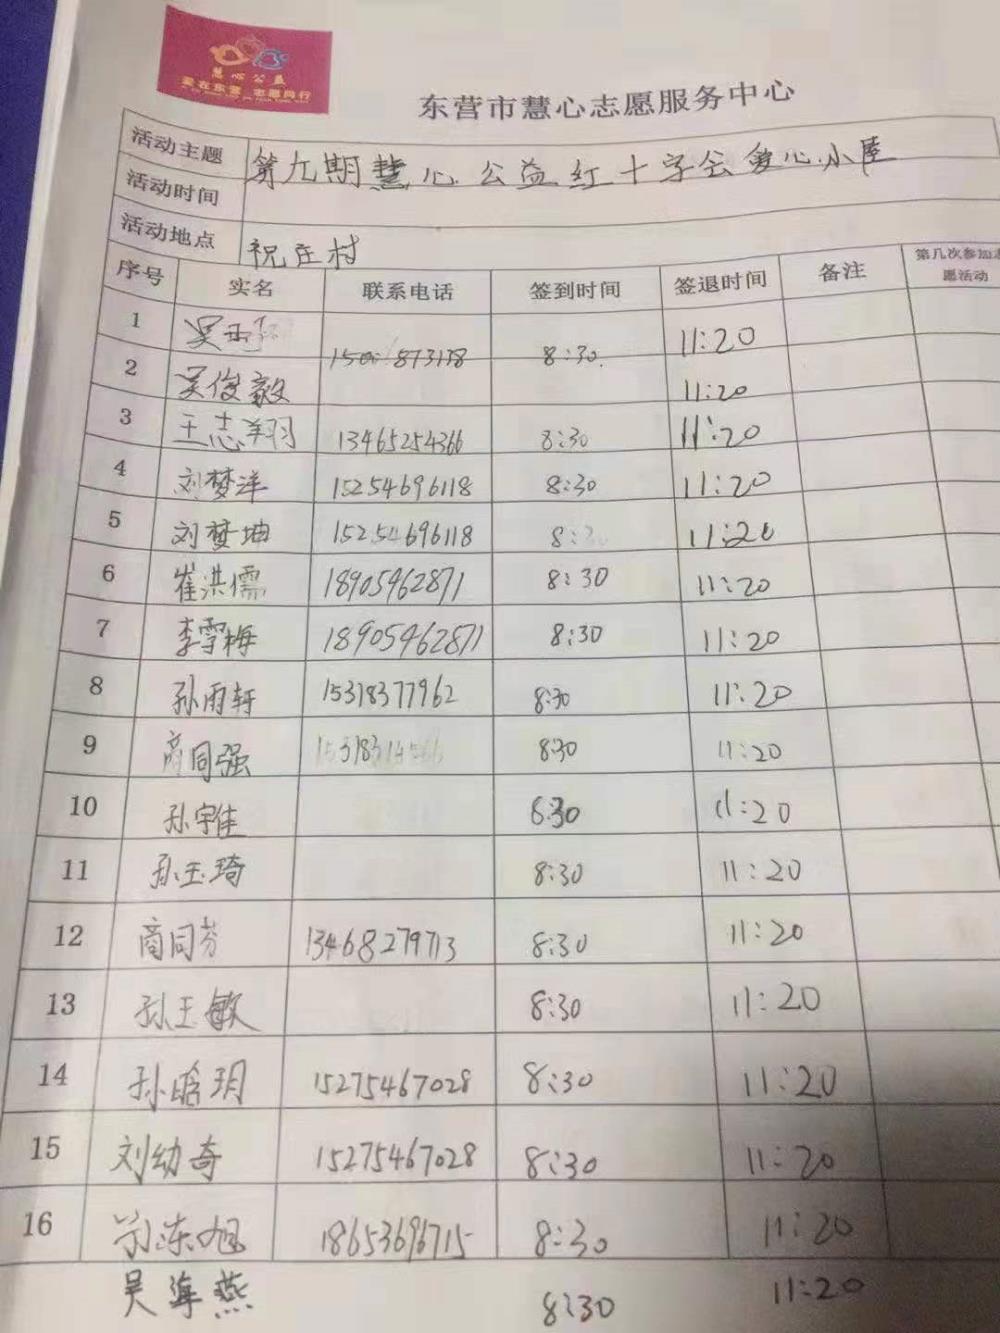 慧心公益
爱在东营 志愿同行
东营市慧心志愿服务中心
活动主题 第九期慧心公益红十字会爱心小屋
活动时间
活动地点 祝庄村
序号 实名 联系电话 签到时间 签退时间 备注 第几次参加志愿活动
1 吴 8:30 11:20
2 吴俊毅 11:20
3 王志翔 13465254366 8:30 11:20
4 刘梦洋 15254696118 8:30 11:20
5 刘梦坤 15254696118 8:30 11:20
6 崔洪儒 18905462871 8:30 11:20
7 李雪梅 18905462871 8:30 11:20
8 孙雨轩 15318377962 8:30 11:20
9 商同强 8:30 11:20
10 孙宇佳 8:30 11:20
11 孙玉琦 8:30 11:20
12 商同芬 13468279713 8:30 11:20
13 孙王敏 8:30 11:20
14 孙晗玥 15275467028 8:30 11:20
15 刘幼奇 15275467028 8:30 11:20
16 孙东旭 18653696715 8:30 11:20
吴海燕 8:30 11:20